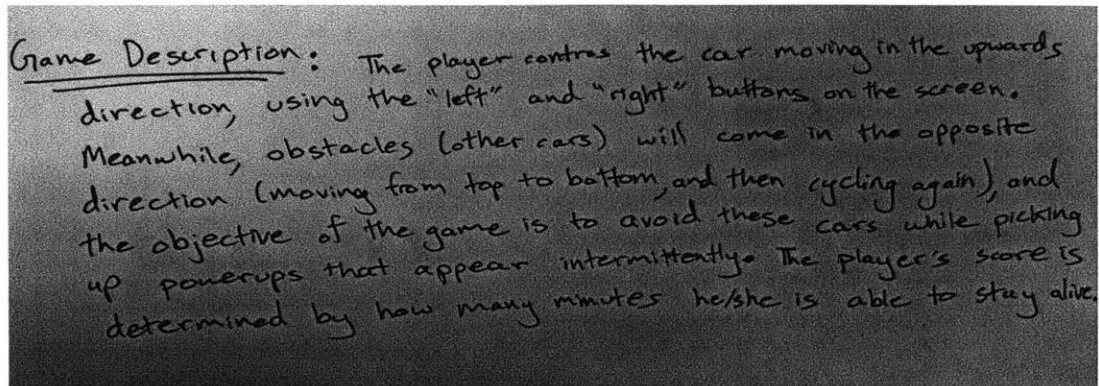 Game Description: The player contros the car moving in the upwards
direction, using the "left" and "right" buttons on the screen.
Meanwhile, obstacles (other cars) will come in the opposite
direction (moving from top to bottom, and then cycling again), and
the objective of the game is to avoid these cars while picking
up powerups that appear intermittently. The player's score is
determined by how many minutes he/she is able to stay alive.